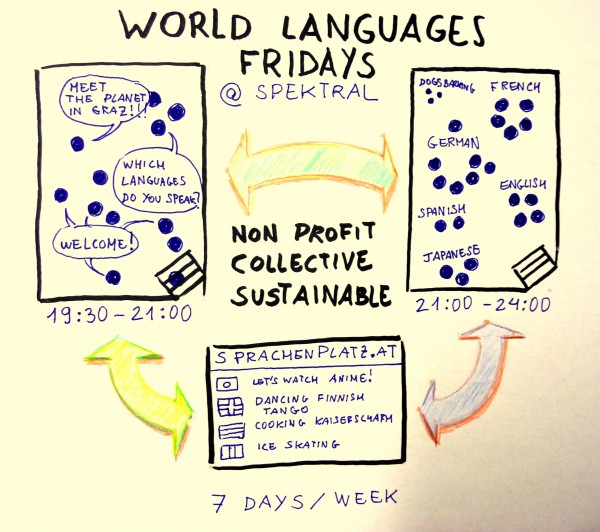 WORLD LANGUAGES
FRIDAYS
@ SPEKTRAL
MEET
THE PLANET
IN GRAZ!!!
WHICH
LANGUAGES
DO YOU SPEAK?
WELCOME!
19:30-21:00
NON PROFIT
COLLECTIVE
SUSTAINABLE
DOGSBARKING
FRENCH
GERMAN
ENGLISH
SPANISH
JAPANESE
21:00-24:00
SPRACHENPLATZ.AT
LET'S WATCH ANIME!
DANCING FINNISH
TANGO
COOKING KAISERSCHARM
ICE SKATING
7 DAYS/WEEK